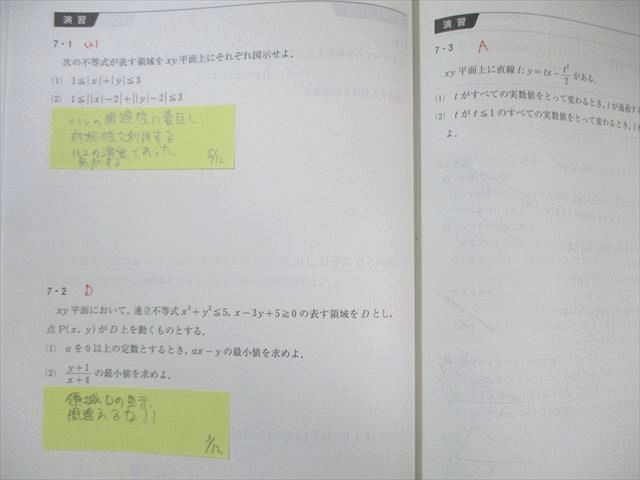 演習
7・1
次の不等式が表す領域を xy 平面上にそれぞれ図示せよ.
(1) 1≦|x|+|y|≦3
(2) 1≦||x|-2|+||y|-2|≦3
(1)との関連性に着目し
対称性を利用する
5/12
7・2 D
xy 平面において, 連立不等式 x²+y²≦5, x-3y+5≧0 の表す領域を D とし,
点 P(x, y) が D 上を動くものとする.
(1) a を 0 以上の定数とするとき, ax-y の最小値を求めよ.
(2) y+1/x+4 の最小値を求めよ.
領域Dの図示
間違えるな!!
5/12
演習
7・3 A
xy 平面上に直線 l: y=tx-t²/2 がある.
(1) t がすべての実数値をとって変わるとき, l が通過する
(2) t が t≦1 のすべての実数値をとって変わるとき, l
よ.